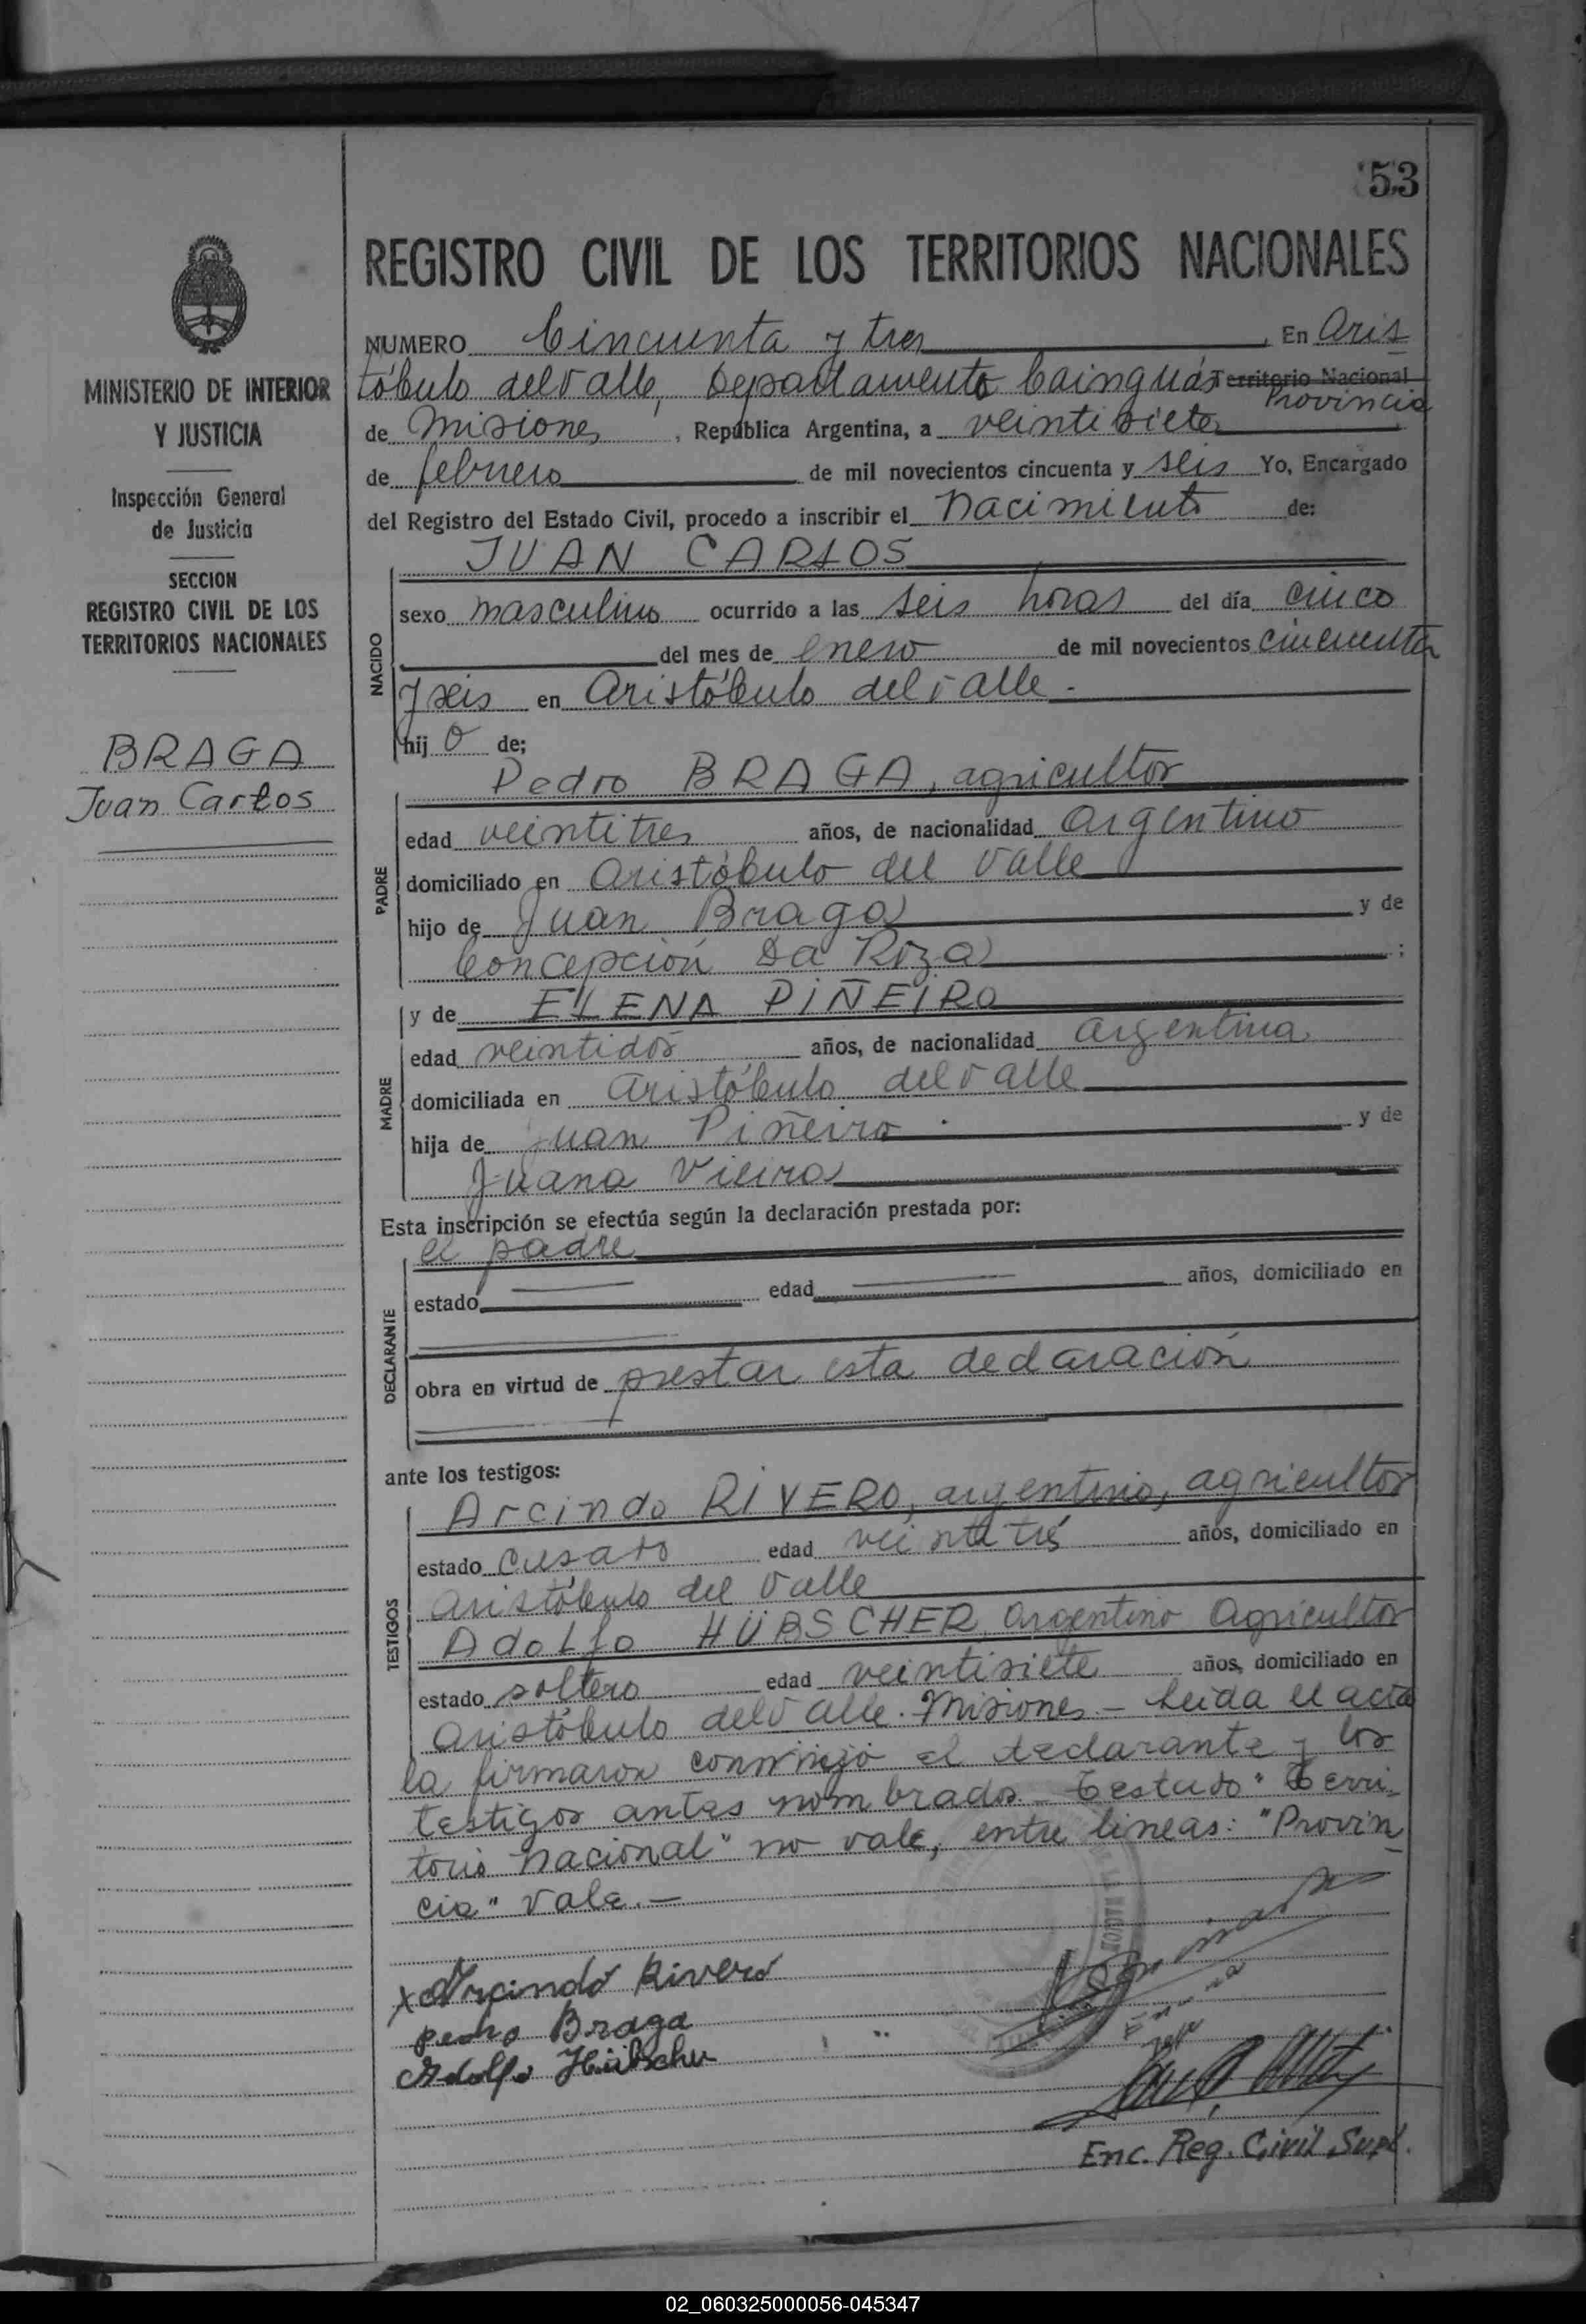 53
REGISTRO CIVIL DE LOS TERRITORIOS NACIONALES
MINISTERIO DE INTERIOR
Y JUSTICIA
Inspección General
de Justicia
SECCION
REGISTRO CIVIL DE LOS
TERRITORIOS NACIONALES
BRAGA
Juan Carlos
NUMERO Cincuenta y tres, En Aris
tóbulo del Valle, Departamento Cainguás Territorio Nacional
Provincia
de Misiones, República Argentina, a veintisiete
de febrero de mil novecientos cincuenta y seis Yo, Encargado
del Registro del Estado Civil, procedo a inscribir el nacimiento de:
JUAN CARLOS
NACIDO
sexo masculino ocurrido a las seis horas del día cinco
del mes de enero de mil novecientos cincuenta
y seis en Aristóbulo del Valle.
hij o de;
Pedro BRAGA, agricultor
PADRE
edad veintitres años, de nacionalidad argentino
domiciliado en Aristóbulo del Valle
hijo de Juan Braga y de
Concepción Da Roza;
y de ELENA PIÑEIRO
MADRE
edad veintidós años, de nacionalidad argentina
domiciliada en Aristóbulo del Valle
hija de Juan Piñeiro y de
Juana Vieira
Esta inscripción se efectúa según la declaración prestada por:
el padre
DECLARANTE
estado edad años, domiciliado en
obra en virtud de prestar esta declaración
ante los testigos:
Arcindo RIVERO, argentino, agricultor
TESTIGOS
estado casado edad veintitrés años, domiciliado en
Aristóbulo del Valle
Adolfo HÜBSCHER, Argentino Agricultor
estado soltero edad veintisiete años, domiciliado en
Aristóbulo del Valle. Misiones.- Leida el acta
la firmaron conmigo el declarante y los
testigos antes nombrados. Testado "Terri-
torio Nacional" no vale, entre lineas: "Provin
cia" Vale.-
x Arcindo Rivero
pedro Braga
Adolfo Hübscher
Enc. Reg. Civil Supl.
02_060325000056-045347